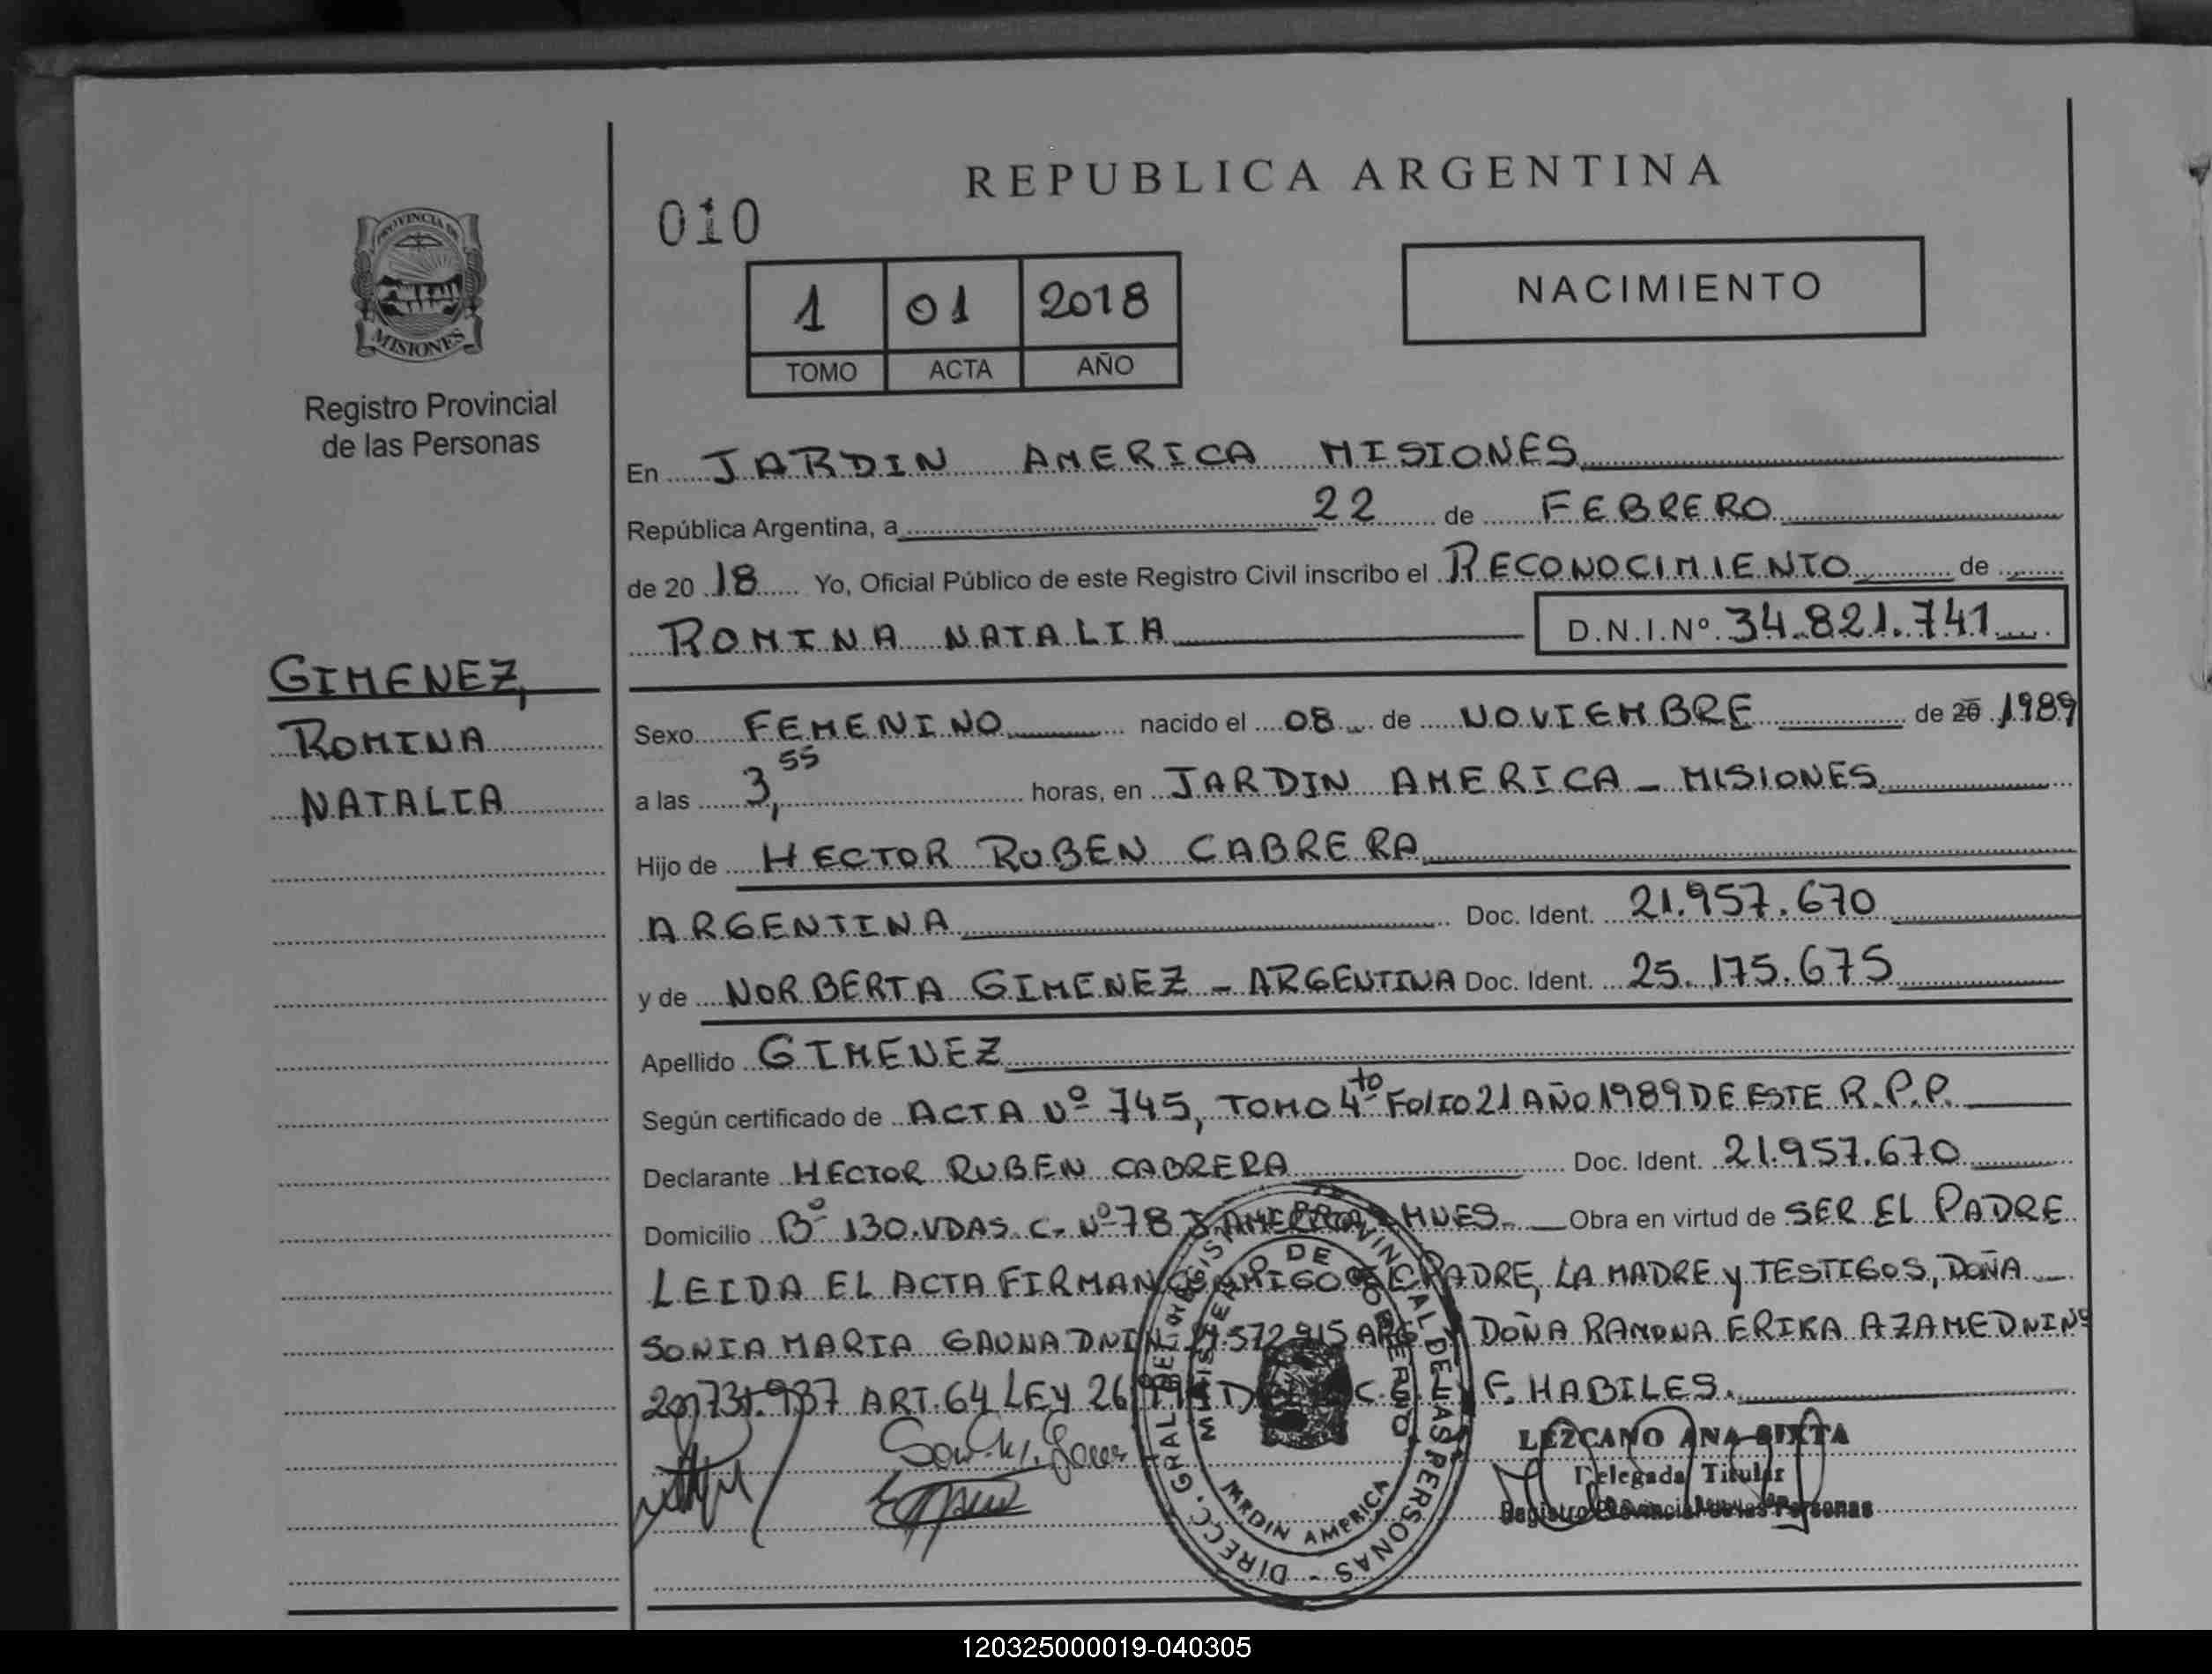 REPUBLICA ARGENTINA
010
NACIMIENTO
1 01 2018
TOMO ACTA AÑO
PROVINCIA DE
MISIONES
Registro Provincial
de las Personas
GIMENEZ,
ROMINA
NATALIA
En JARDIN AMERICA MISIONES
República Argentina, a 22 de FEBRERO
de 20 18 Yo, Oficial Público de este Registro Civil inscribo el RECONOCIMIENTO de
ROMINA NATALIA D.N.I.Nº 34.821.741
Sexo FEMENINO nacido el 08 de NOVIEMBRE de 20 1989
a las 3,55 horas, en JARDIN AMERICA - MISIONES
Hijo de HECTOR RUBEN CABRERA
ARGENTINA Doc. Ident. 21.957.670
y de NORBERTA GIMENEZ - ARGENTINA Doc. Ident. 25.175.675
Apellido GIMENEZ
Según certificado de ACTA Nº 745, TOMO 4to FOLIO 21 AÑO 1989 DE ESTE R.P.P.
Declarante HECTOR RUBEN CABRERA Doc. Ident. 21.957.670
Domicilio Bº 130 VDAS. C. Nº 78 J. AMERICA MNES Obra en virtud de SER EL PADRE
LEIDA EL ACTA FIRMAN CONMIGO EL PADRE, LA MADRE y TESTIGOS, DOÑA
SONIA MARIA GAUNA DNI Nº 572.915 ARG. DOÑA RAMONA ERIKA AZAME DNI Nº
731.937 ART. 64 LEY 26 C. F. HABILES.
DIRECC. GRAL DEL REGISTRO PROVINCIAL DE LAS PERSONAS -
MINISTERIO DE GOBIERNO
JARDIN AMERICA
LEZCANO ANA SIXTA
Delegada Titular
Registro Provincial de las Personas
120325000019-040305